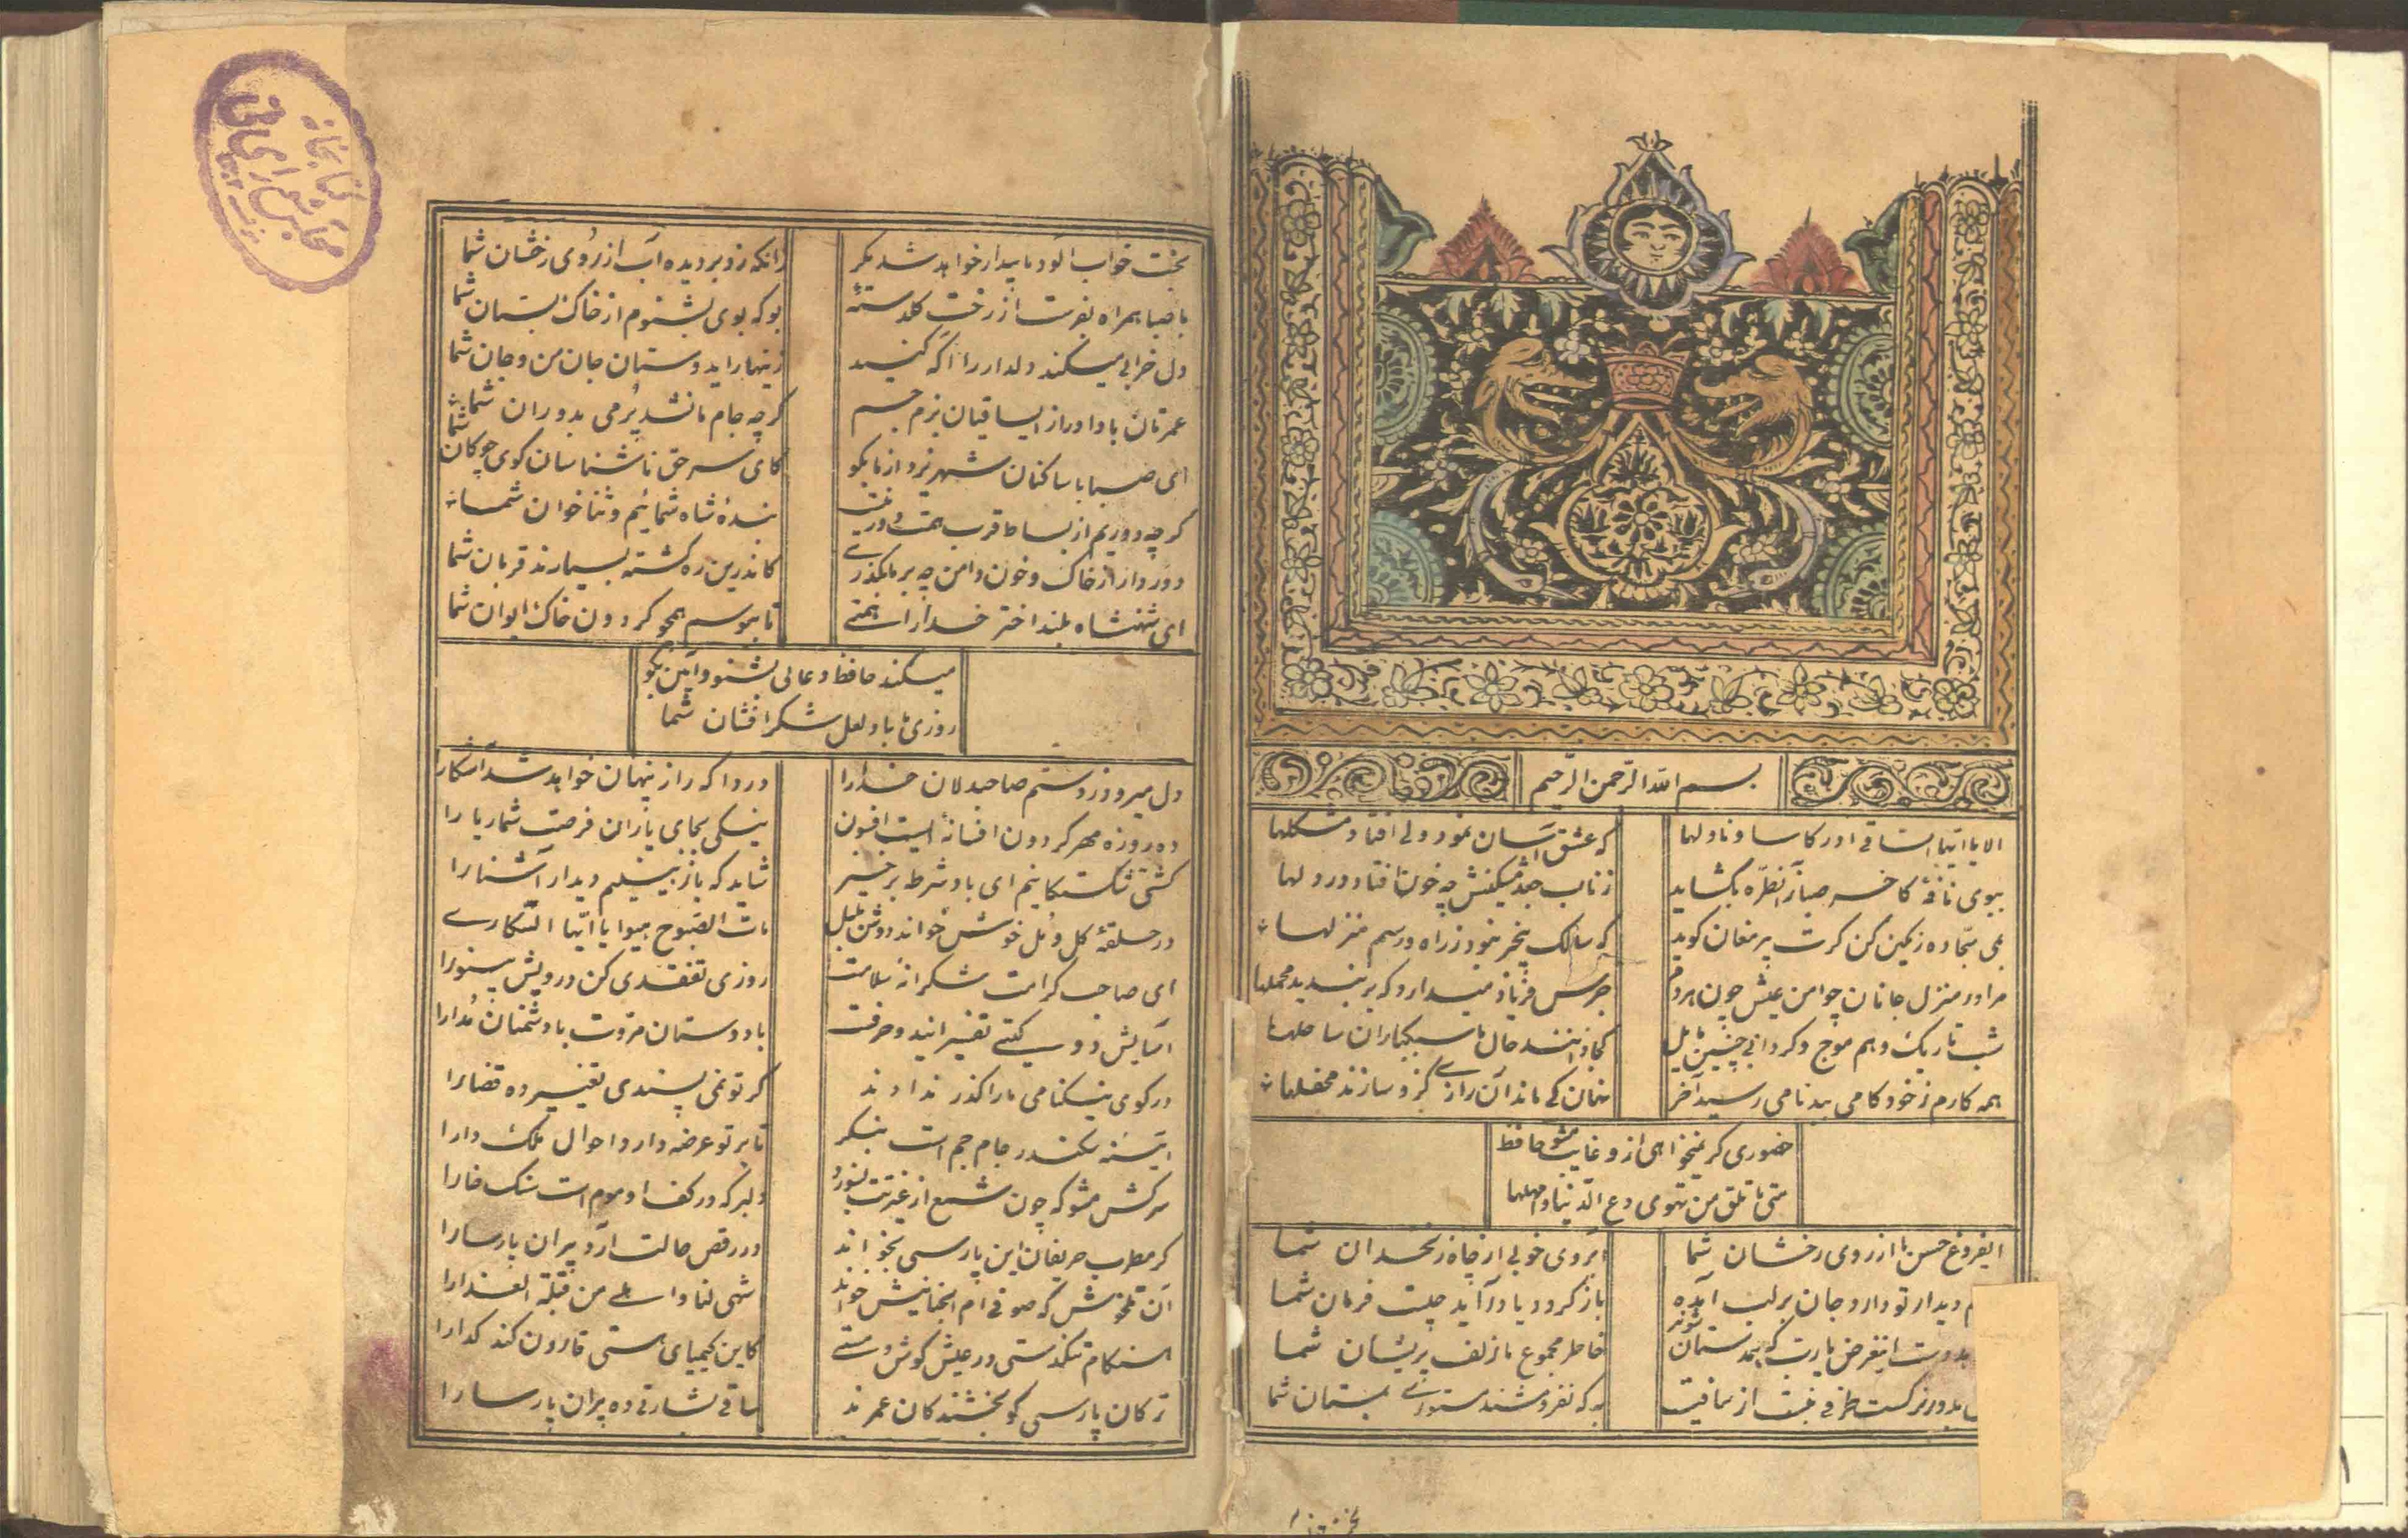 بسم الله الرحمن الرحیم
الا یا ایها الساقی ادر کاسا و ناولها که عشق آسان نمود ولی افتاد مشکلها
ببوی نافهٔ کاخر صبا زانطره بکشاید ز تاب جعد مشکینش چه خون افتاد در دلها
بمی سجاده رنکین کن کرت پیر مغان کوید که سالک بیخبر نبود ز راه و رسم منزلها
مرا در منزل جانان چو امن عیش چون هر دم جرس فریاد میدارد که بر بندید محملها
شب تاریک و بیم موج و کردابی چنین هایل کجا دانند حال ما سبکباران ساحلها
همه کارم ز خود کامی ببدنامی رسید آخر نهان کی ماند آن رازی کزو سازند محفلها
حضوری کر نمیخواهی ازو غایب مشو حافظ
متی ما تلق من تهوی دع الدنیا و مهلها
ایفروغ حسن ما از روی رخشان شما ابروی خوبی از چاه زنخدان شما
دیدار تو دارد جان بر لب آمده باز کردد یا در آید چیست فرمان شما
دست اینغرض یارب که همدستان شوند خاطر مجموع ما زلف پریشان شما
بدور نرکست طرفی نبست از عافیت به که نفروشند مستوری بمستان شما
بخت خواب
کتابخانه
مجلس شورای ملی
بخت خواب آلود ما بیدار خواهد شد مکر زانکه زد بر دیده آب از روی رخشان شما
با صبا همراه بفرست از رخت کلدستهٔ بو که بوی بشنوم از خاک بستان شما
دل خرابی میکند دلدار را آکه کنید زینهار ایدوستان جان من و جان شما
عمرتان بادا دراز ایساقیان بزم جم کر چه جام ما نشد پر می بدوران شما
ای صبا با ساکنان شهر یزد از ما بکو کای سر حق ناشناسان کوی چوکان شما
کر چه دوریم از بساط قرب همت دور نیست بندهٔ شاه شمائیم و ثناخوان شما
دور دار از خاک و خون دامن چو بر ما بکذری کاندرین ره کشته بسیارند قربان شما
ای شهنشاه بلند اختر خدا را همتی تا ببوسم همچو کردون خاک ایوان شما
میکند حافظ دعائی بشنو و آمین بکو
روزی ما باد لعل شکر افشان شما
دل میرود ز دستم صاحبدلان خدا را دردا که راز پنهان خواهد شد آشکارا
ده روزه مهر کردون افسانه است افسون نیکی بجای یاران فرصت شمار یارا
کشتی شکستکانیم ای باد شرطه برخیز شاید که باز بینیم دیدار آشنا را
در حلقهٔ کل و مل خوش خواند دوش بلبل هات الصبوح هبوا یا ایها السکاری
ای صاحب کرامت شکرانهٔ سلامت روزی تفقدی کن درویش بینوا را
آسایش دو کیتی تفسیر این دو حرفست با دوستان مروت با دشمنان مدارا
در کوی نیکنامی ما را کذر ندادند کر تو نمی پسندی تغییر ده قضا را
آیینهٔ سکندر جام جم است بنکر تا بر تو عرضه دارد احوال ملک دارا
سرکش مشو که چون شمع از غیرتت بسوزد دلبر که در کف او موم است سنک خارا
کر مطرب حریفان این پارسی بخواند در رقص حالت آرد پیران پارسا را
آن تلخوش که صوفی ام الخبائثش خواند اشهی لنا و احلی من قبلة العذارا
هنکام تنکدستی در عیش کوش و مستی کاین کیمیای هستی قارون کند کدا را
ترکان پارسی کو بخشندکان عمرند ساقی بشارتی ده پیران پارسا را